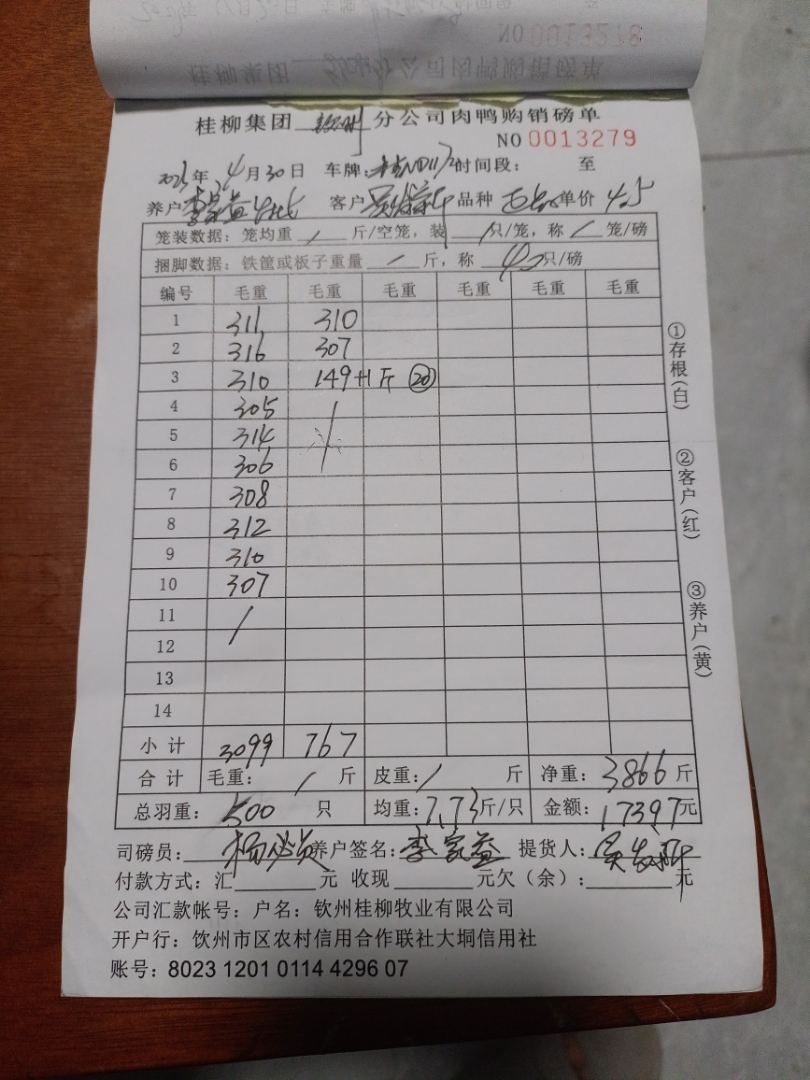 NO 0013278
桂柳集团 钦州 分公司肉鸭购销磅单
NO 0013279
年 4月30日 车牌: 时间段: 至
养户 李家益 客户 品种 单价 4.5
笼装数据: 笼均重 / 斤/空笼, 装 / 只/笼, 称 / 笼/磅
捆脚数据: 铁筐或板子重量 / 斤, 称 40 只/磅
编号 毛重 毛重 毛重 毛重 毛重 毛重
1 311 310
2 316 307
3 310 149+1斤 ⑳
4 305 /
5 314
6 306
7 308
8 312
9 310
10 307
11 /
12
13
14
小计 3099 767
合计 毛重: / 斤 皮重: / 斤 净重: 3866 斤
总羽重: 500 只 均重: 7.73 斤/只 金额: 17397 元
司磅员: 养户签名: 李家益 提货人:
付款方式: 汇 元 收现 元欠(余): 元
公司汇款帐号: 户名: 钦州桂柳牧业有限公司
开户行: 饮州市区农村信用合作联社大垌信用社
账号: 8023 1201 0114 4296 07
①存根(白)
②客户(红)
③养户(黄)